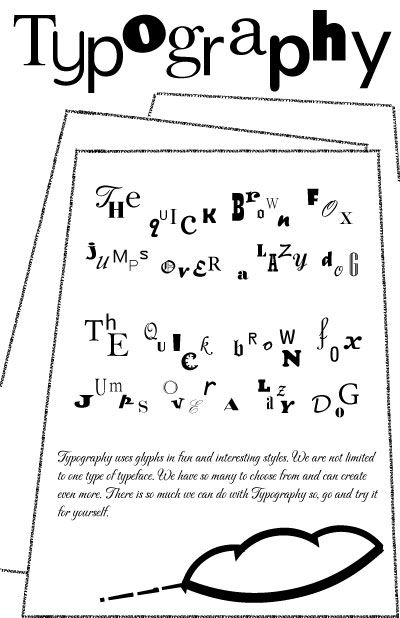 Typography
THe qUICK BroWn FOx
jUMPs OvER a LAZy doG
ThE QuIcк bRoWN fox
JUmps Over A LazY DoG
Typography uses glyphs in fun and interesting styles. We are not limited
to one type of typeface. We have so many to choose from and can create
even more. There is so much we can do with Typography so, go and try it
for yourself.